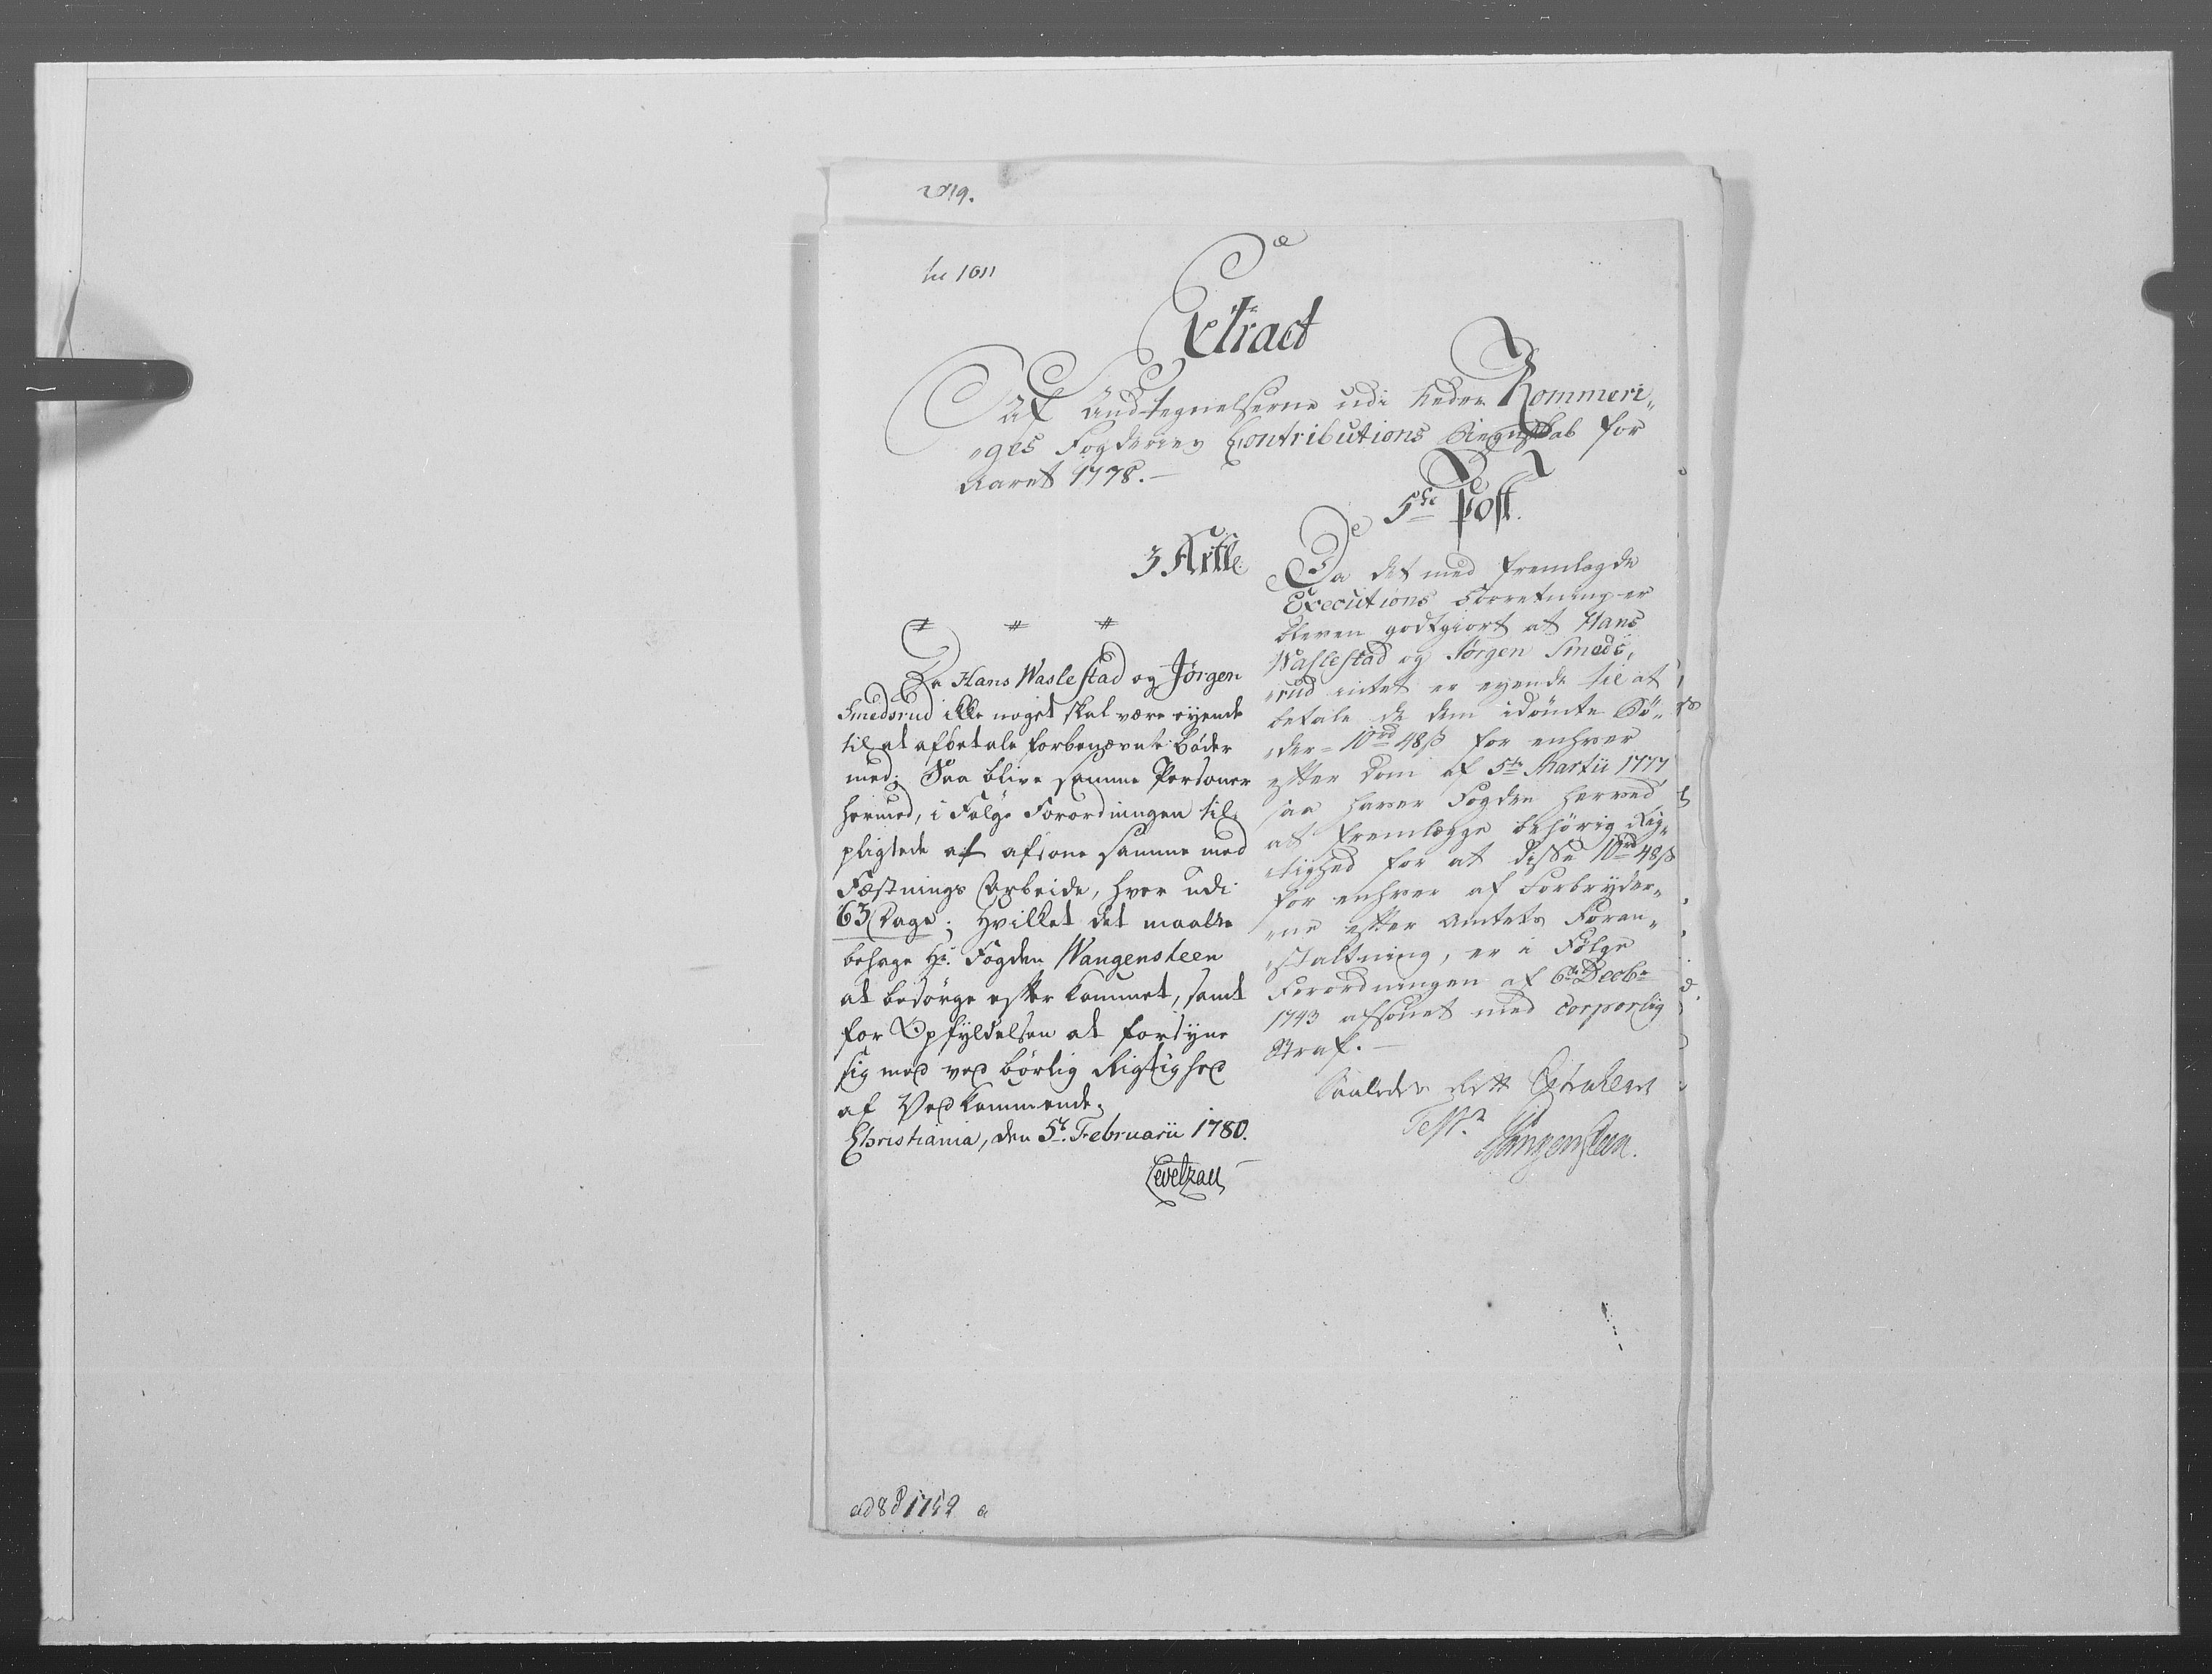 Extract
Af Andtegnelserne udi Neder Rommeri„
„ges Fogderies Contributions Regnskab for
Aaret 1778.—
5te Post.
Da det med fremlagde
Executions Forretning er
bleven godtgiort at Hans
Waslestad og Jørgen Smeds,
„rud intet er eyende til at
betale de dem idømte Bö„
„der = 10rd 48ß for enhver
efter Dom af 5te Martii 1777
saa haver Fogden herved
at fremlægge behörig Rig„
„tighed for at disse 10rd 48ß
for enhver af Forbryder„
„ne efter Amtets Foran„
„staltning, er i Følge
Forordningen af 6te Decbr
1743 afsonet med corporlig
Straf.—
Saaledes rett Extraheret
Test.
Wangensteen.
3 Artle
# # #
Da Hans Waslestad og Jørgen
Smedsrud ikke noget skal være eyende
til at afbetale forbenævnte Bøder
med; Saa blive samme Personer
hermed, i Følge Forordningen til,
pligtede at afsone samme med
Fæstnings Arbeide, hver udi
63 Dage; Hvilket det maatte
behage Hr. Fogden Wangensteen
at besörge efterkommet, samt
for Opfyldelsen at forsyne
sig med ved börlig Rigtighed
af Vedkommende.
Christiania, den 5te Februarii 1780.
Levetzau